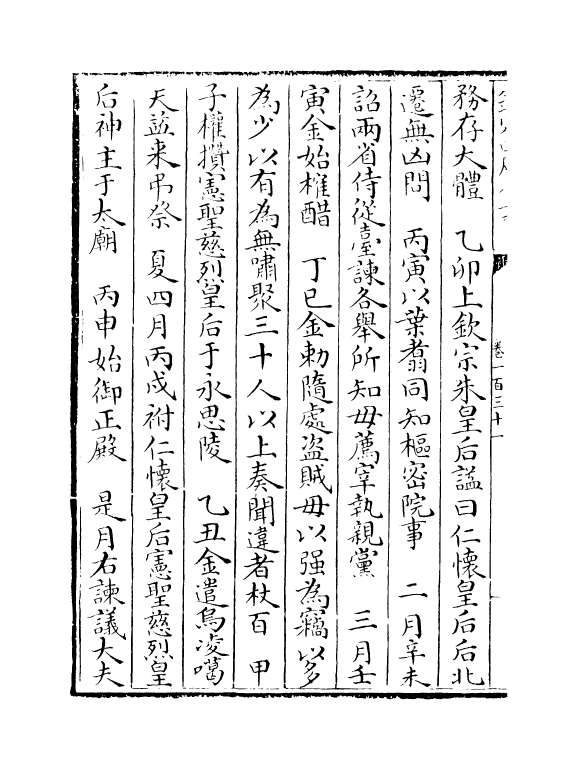 卷一百三十一
務存大體　乙卯上欽宗朱皇后謚曰仁懷皇后后北
遷無凶問　丙寅以葉翥同知樞密院事　二月辛未
詔兩省侍從臺諫各舉所知毋薦宰執親黨　三月壬
寅金始榷醋　丁巳金勅隨處盜賊毋以强為竊以多
為少以有為無嘯聚三十人以上奏聞違者杖百　甲
子權攢憲聖慈烈皇后于永思陵　乙丑金遣烏凌噶
天益来弔祭　夏四月丙戌祔仁懷皇后憲聖慈烈皇
后神主于太廟　丙申始御正殿　是月右諫議大夫